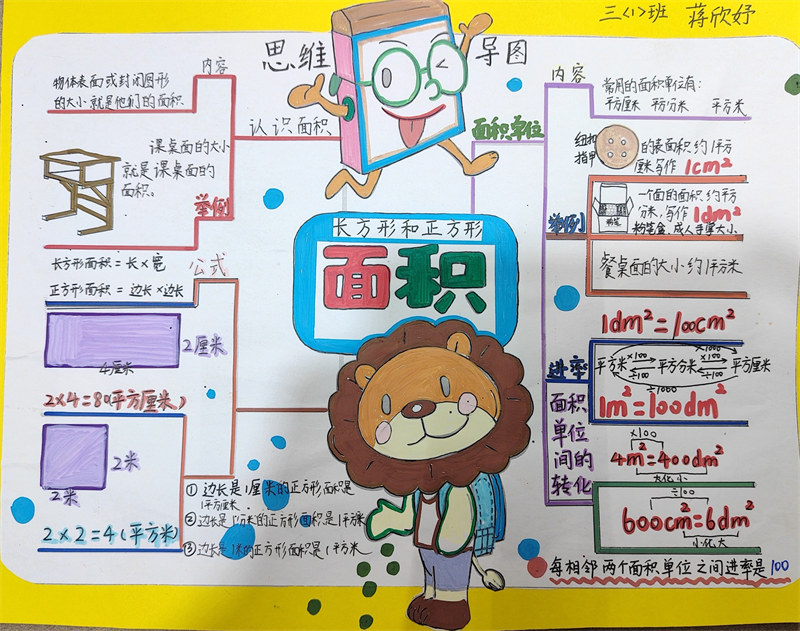 三〈1〉班 蒋欣妤
思维导图
内容
物体表面或封闭图形
的大小就是他们的面积
认识面积
课桌面的大小
就是课桌面的
面积。
举例
长方形和正方形
面积
公式
长方形面积=长×宽
正方形面积=边长×边长
2厘米
4厘米
2×4=8(平方厘米)
2米
2米
2×2=4(平方米)
①边长是1厘米的正方形面积是
1平方厘米.
②边长是1分米的正方形面积是1平方分米
③边长是1米的正方形面积是1平方米
面积单位
内容
常用的面积单位有:
平方厘米 平方分米 平方米
举例
纽扣
指甲
的表面积约1平方
厘米写作1cm²
粉笔
一个面的面积约平方
分米,写作1dm²
粉笔盒、成人手掌大小
餐桌面的大小约1平方米
进率
面积
单位
间的
转化
1dm²=100cm²
×1000
平方米 ×100 平方分米 ×100 平方厘米
÷100 ÷100
÷1000
1m²=100dm²
×100
4m²=400dm²
大化小
÷100
600cm²=6dm²
小化大
每相邻两个面积单位之间进率是100